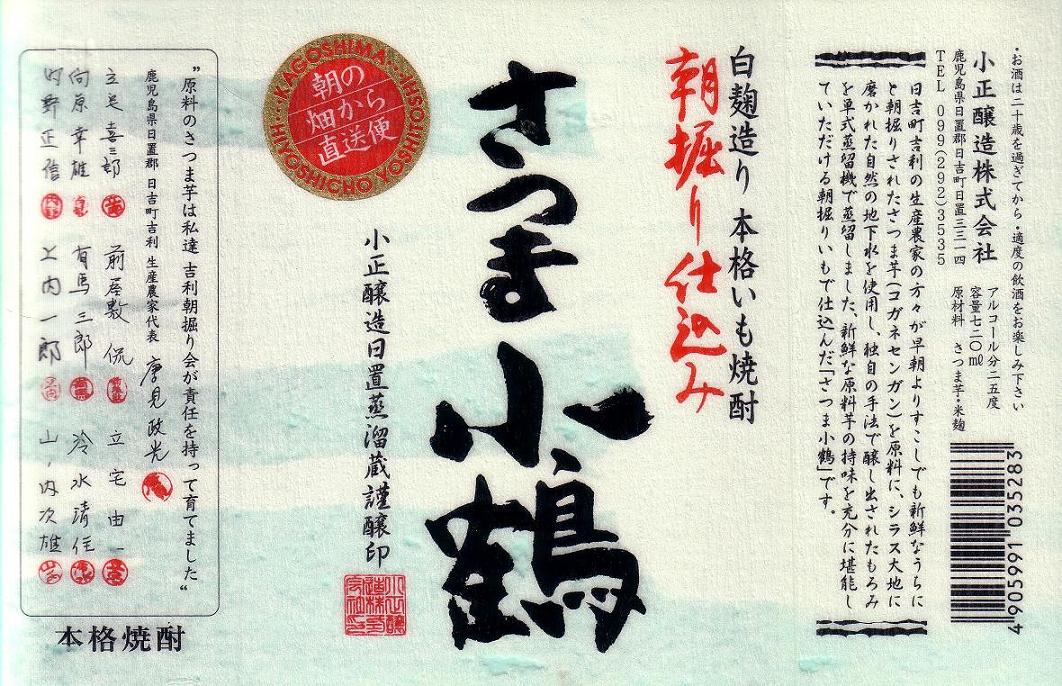 ・お酒は二十歳を過ぎてから・適度の飲酒をお楽しみ下さい
小正醸造株式会社
鹿児島県日置郡日吉町日置三三一四
TEL 099(292)3535
アルコール分二五度
容量七二〇mℓ
原材料 さつま芋・米麹
4905991035283
日吉町吉利の生産農家の方々が早朝よりすこしでも新鮮なうちに
と朝堀りされたさつま芋(コガネセンガン)を原料に、シラス大地に
磨かれた自然の地下水を使用し、独自の手法で醸し出されたもろみ
を単式蒸留機で蒸留しました、新鮮な原料芋の持味を充分に堪能し
ていただける朝堀りいもで仕込んだ「さつま小鶴」です。
白麹造り 本格いも焼酎
朝掘り仕込み
さつま小鶴
小正醸造日置蒸溜蔵謹醸印
KAGOSHIMA
HIYOSHICHO YOSHITOSHI
朝の
畑から
直送便
"原料のさつま芋は私達 吉利朝堀り会が責任を持って育てました"
鹿児島県日置郡 日吉町吉利 生産農家代表 唐見政光
立美喜三郎 前屋敷 侃 立宅由一
向原幸雄 有馬三郎 冷水清住
内野正信 上内一郎 山ノ内次雄
本格焼酎